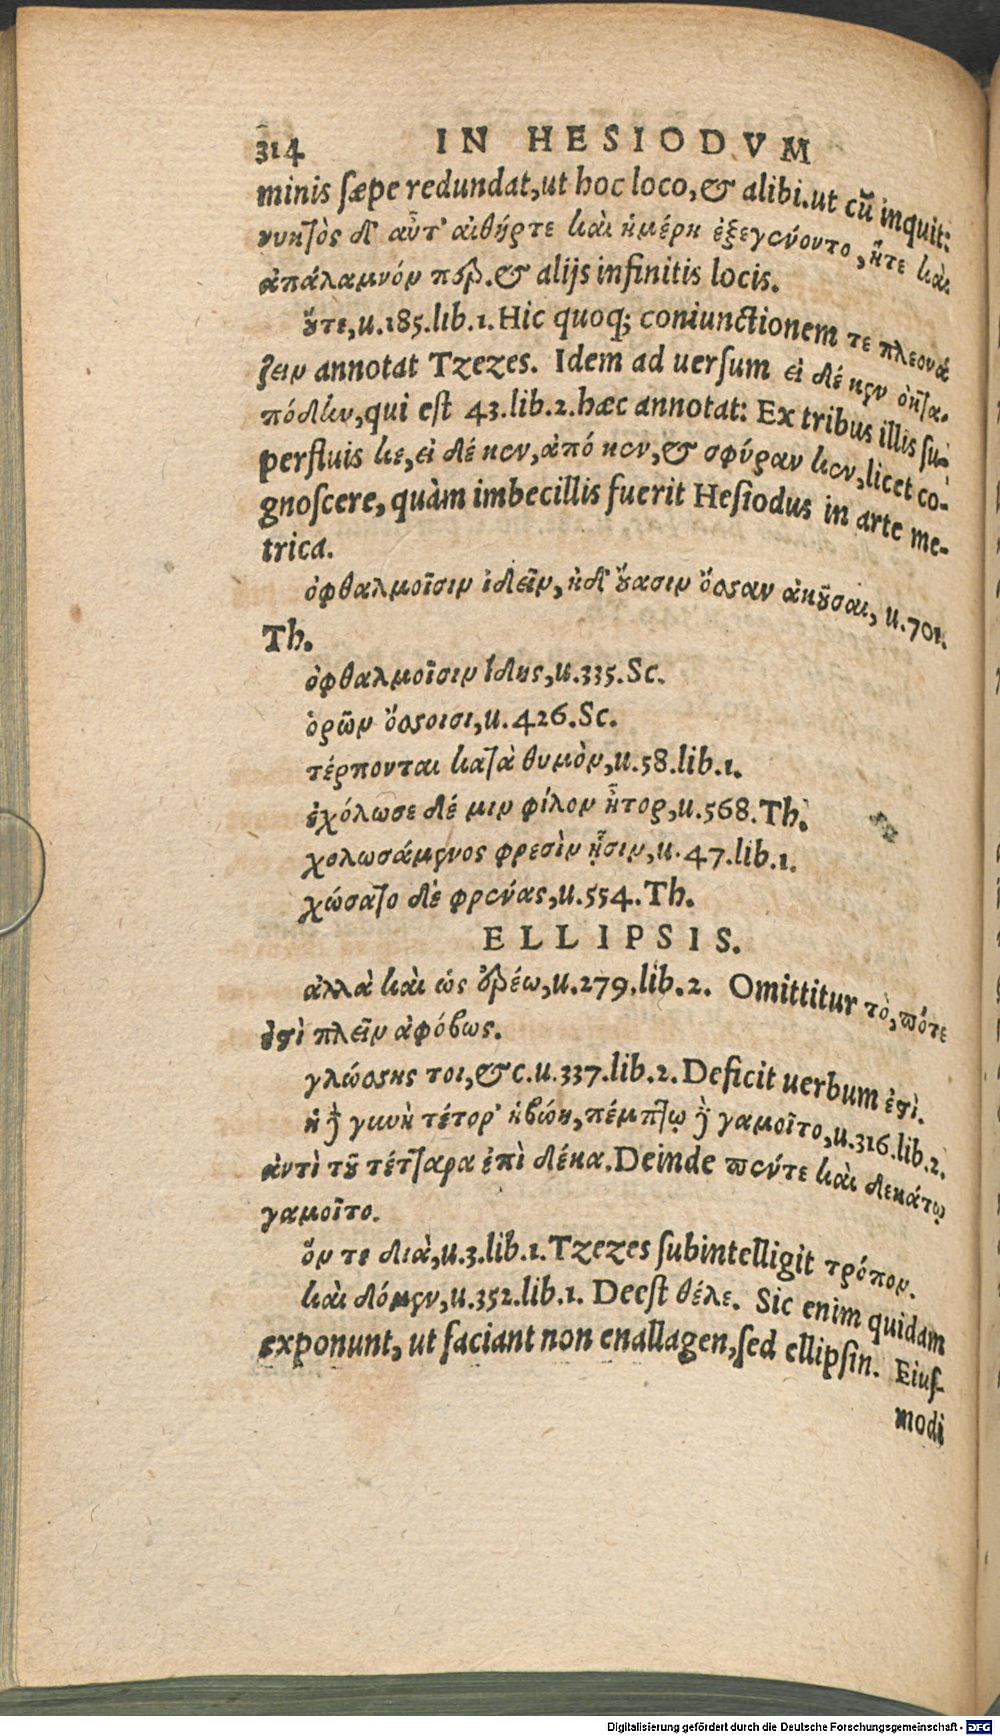 314 IN HESIODVM
minis sæpe redundat, ut hoc loco, & alibi. ut cũ inquit:
νυκτὸς δ' αὖτ' αἰθήρτε καὶ ἡμέρη ἐξεγένοντο, ἥτε καὶ
ἀπάλαμνόν περ. & alijs infinitis locis.
οὔτε, u. 185. lib. 1. Hic quoq; coniunctionem τε πλεονά
ζειν annotat Tzezes. Idem ad uersum εἰ δέ κεν ὀκτα-
πόδην, qui est 43. lib. 2. hæc annotat: Ex tribus illis su-
perfluis κε, εἰ δέ κεν, ἀπό κεν, & σφύραν κεν, licet co-
gnoscere, quàm imbecillis fuerit Hesiodus in arte me-
trica.
ὀφθαλμοῖσιν ἰδεῖν, ἠδ' οὔασιν ὄσσαν ἀκοῦσαι, u. 701.
Th.
ὀφθαλμοῖσιν ἴδῃς, u. 335. Sc.
ὁρῶν ὄσσοισι, u. 426. Sc.
τέρπονται κατὰ θυμὸν, u. 58. lib. 1.
ἐχόλωσε δέ μιν φίλον ἦτορ, u. 568. Th.
χολωσάμενος φρεσὶν ᾗσιν, u. 47. lib. 1.
χώσατο δὲ φρένας, u. 554. Th.
ELLIPSIS.
ἀλλὰ καὶ ὡς ἐρέω, u. 279. lib. 2. Omittitur τὸ, πότε
ἐστὶ πλεῖν ἀφόβως.
γλώσσης τοι, &c. u. 337. lib. 2. Deficit uerbum ἐστὶ.
ἡ δὲ γυνὴ τέτορ' ἡβώῃ, πέμπτῳ δὲ γαμοῖτο, u. 316. lib. 2.
ἀντὶ τοῦ τέτταρα ἐπὶ δέκα. Deinde πέντε καὶ δεκάτῳ
γαμοῖτο.
ὅν τε διὰ, u. 3. lib. 1. Tzezes subintelligit τρόπον.
καὶ δόμεν, u. 352. lib. 1. Deest θέλε. Sic enim quidam
exponunt, ut faciant non enallagen, sed ellipsin. Eius-
modi
Digitalisierung gefördert durch die Deutsche Forschungsgemeinschaft - DFG